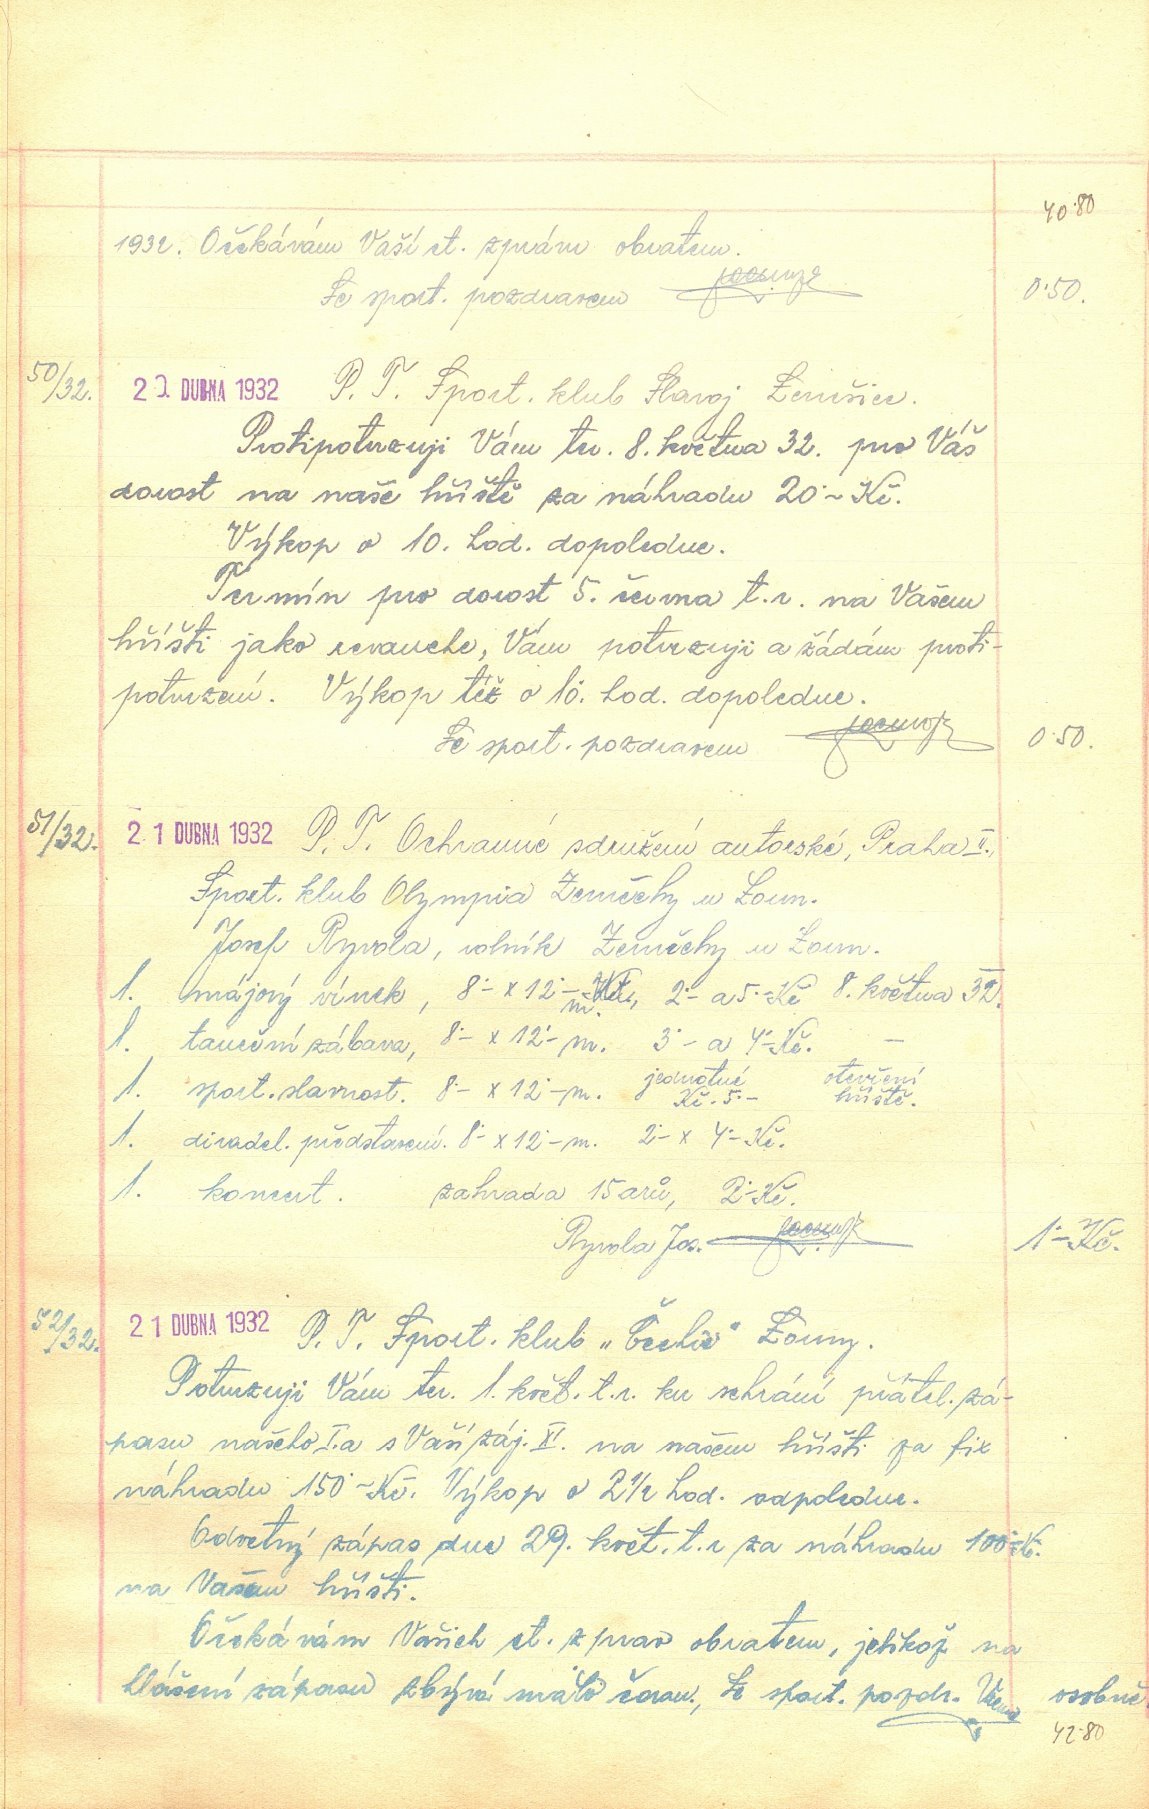 40·80
1932. Očekávám Vaší ct. zprávu obratem.
Se sport. pozdravem
0·50.
50/32. 20 DUBNA 1932 P. T. Sport. klub Slavoj Zemšice.
Protipotvrzuji Vám ter. 8. května 32. pro Váš
dorost na naše hřiště za náhradu 20·- Kč.
Výkop o 10. hod. dopoledne.
Termín pro dorost 5. června t. r. na Vašem
hřišti jako revanche, Vám potvrzuji a žádám proti-
potvrzení. Výkop též o 10. hod. dopoledne.
Se sport. pozdravem
0·50.
51/32. 21 DUBNA 1932 P. T. Ochranné sdružení autorské, Praha II.,
Sport. klub Olympia Zeměchy u Loun.
Josef Ryvola, rolník Zeměchy u Loun.
1. májový vínek, 8·- x 12·- m., 2·- a 5·- Kč 8. května 32.
1. taneční zábava, 8·- x 12·- m. 3·- a 4·- Kč. –
1. sport. slavnost. 8·- x 12·- m. jednotné Kč. 5·- otevření hřiště.
1. divadel. představení. 8·- x 12·- m. 2·- x 4·- Kč.
1. koncert. zahrada 15 arů, 2·- Kč.
Ryvola Jos.
1·- Kč.
52/32. 21 DUBNA 1932 P. T. Sport. klub „Čechie" Louny.
Potvrzuji Vám ter. 1. květ. t. r. ku sehrání přátel. zá-
pasu našeho I. a s Vaší záj. XI. na našem hřišti za fix
náhradu 150·- Kč. Výkop o 2 1/2 hod. odpoledne.
Odvetný zápas dne 29. květ. t. r za náhradu 100·- Kč.
na Vašem hřišti.
Očekávám Vašich ct. zpráv obratem, jelikož na
hlášení zápasu zbývá málo času., Se sport. pozdr.
osobně
42·80